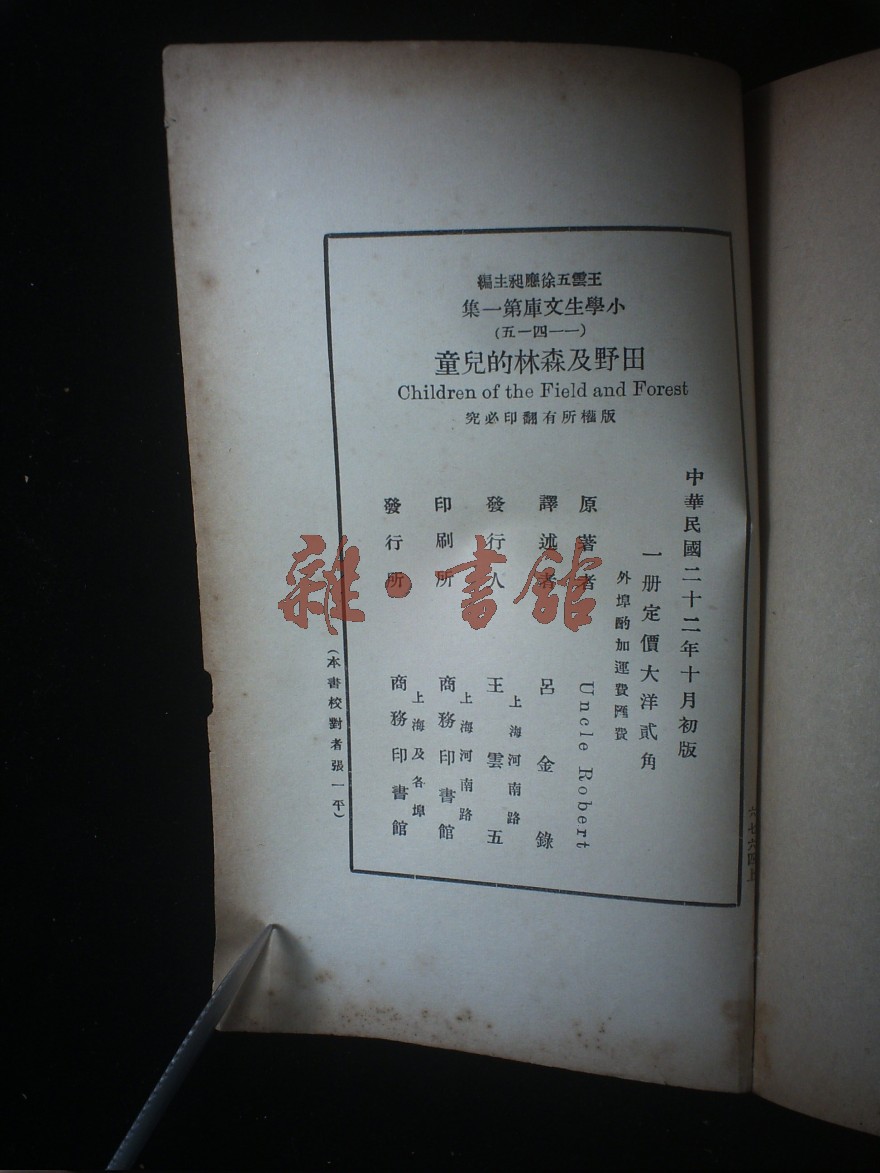 王雲五徐應昶主編
小學生文庫第一集
(一一四一五)
田野及森林的兒童
Children of the Field and Forest
版權所有翻印必究
中華民國二十二年十月初版
一册定價大洋貳角
外埠酌加運費匯費
原著者 Uncle Robert
譯述者 呂金錄
發行人 王雲五
上海河南路
印刷所 商務印書館
上海河南路
發行所 商務印書館
上海及各埠
(本書校對者張一平)
六七六四上
雜·書館